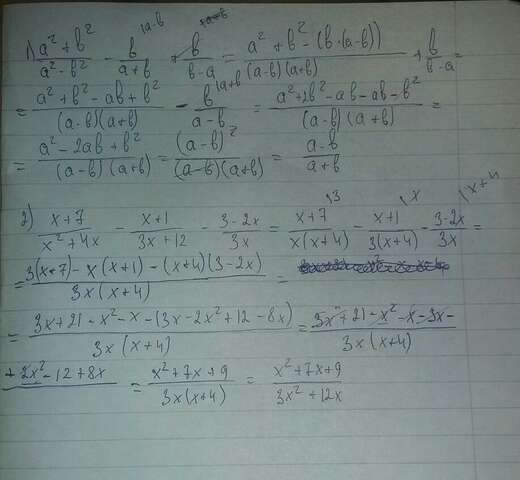 1) (a² + b²)/(a² - b²) - b/(a+b) |a-b + b/(b-a) = (a² + b² - (b·(a-b)))/((a-b)(a+b)) + b/(b-a) =
= (a² + b² - ab + b²)/((a-b)(a+b)) - b/(a-b) |a+b = (a² + 2b² - ab - ab - b²)/((a-b)(a+b)) =
= (a² - 2ab + b²)/((a-b)(a+b)) = (a-b)²/((a-b)(a+b)) = (a-b)/(a+b)
2) (x+7)/(x² + 4x) - (x+1)/(3x+12) - (3-2x)/(3x) = (x+7)/(x(x+4)) |3 - (x+1)/(3(x+4)) |x - (3-2x)/(3x) |x+4 =
= (3(x+7) - x(x+1) - (x+4)(3-2x))/(3x(x+4)) =
= (3x+21 - x² - x - (3x - 2x² + 12 - 8x))/(3x(x+4)) = (3x + 21 - x² - x - 3x -)/(3x(x+4))
+ 2x² - 12 + 8x = (x² + 7x + 9)/(3x(x+4)) = (x² + 7x + 9)/(3x² + 12x)